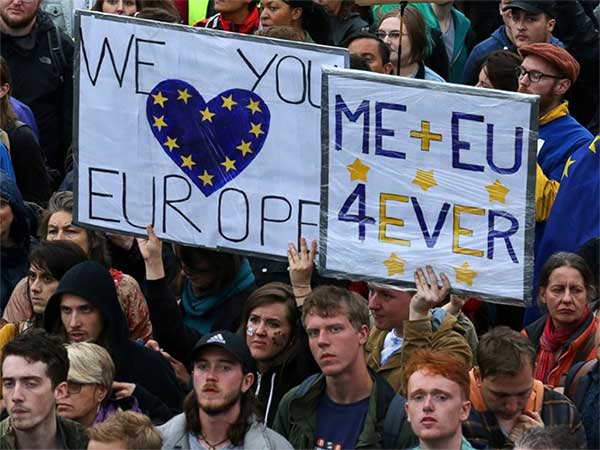 WE YOU
EUROPE
ME + EU
4EVER